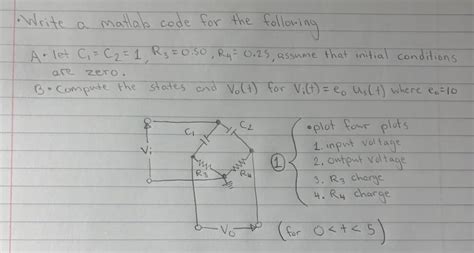 • Write a matlab code for the following
A • let C₁ = C₂ = 1, R₃ = 0.50, R₄ = 0.25, assume that initial conditions
are zero.
B • Compute the states and V₀(t) for Vᵢ(t) = e₀ Uₛ(t) where e₀ = 10
C₁
C₂
Vᵢ
R₃
R₄
V₀
①
• plot four plots
1. input voltage
2. output voltage
3. R₃ charge
4. R₄ charge
(for 0 < t < 5)